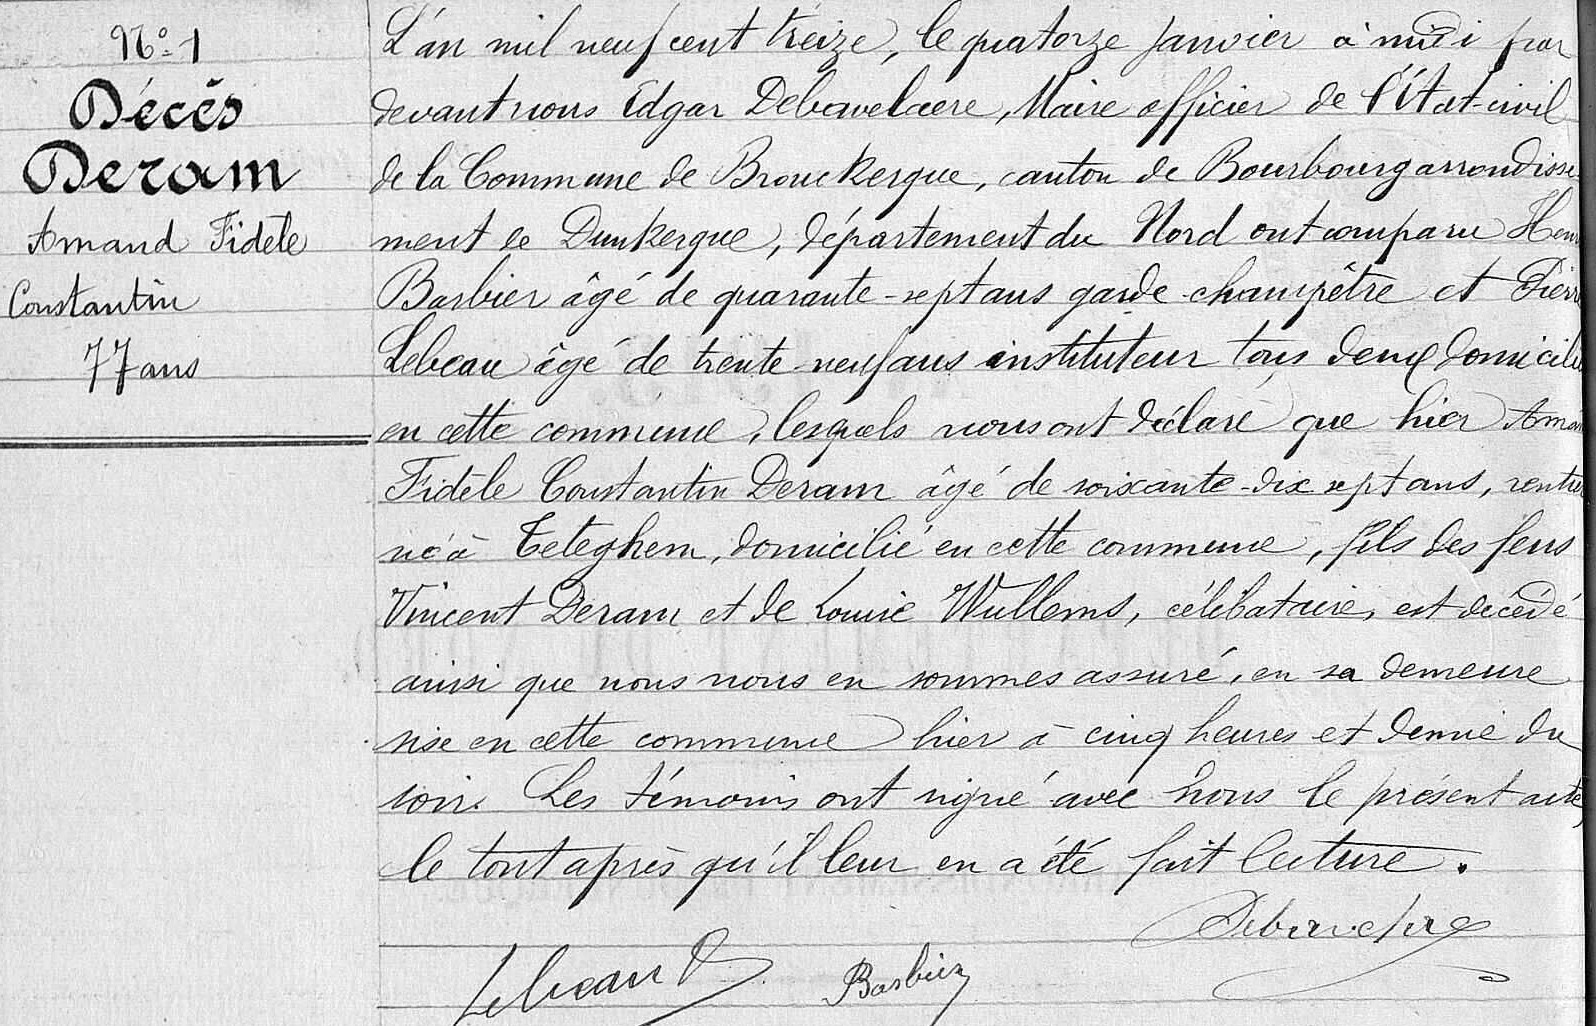 N° 1
Décès
Deram
Amand Fidèle
Constantin
77 ans
L'an mil neuf cent treize, le quatorze janvier à midi par
devant nous Edgar Debavelaere, Maire officier de l'État-civil
de la Commune de Brouckerque, canton de Bourbourg arrondisse
ment de Dunkerque, département du Nord ont comparu Henri
Barbier âgé de quarante-sept ans garde-champêtre et Pierre
Lebeau âgé de trente-neuf ans instituteur tous deux domicilié
en cette commune, lesquels nous ont déclaré que hier Aman
Fidèle Constantin Deram âgé de soixante-dix sept ans, rentier
né à Teteghem, domicilié en cette commune, fils des feus
Vincent Deram et de Louise Wullems, célibataire, est décédé
ainsi que nous nous en sommes assuré, en sa demeure
sise en cette commune hier à cinq heures et demie du
soir. Les témoins ont signé avec nous le présent acte,
le tout après qu'il leur en a été fait lecture.
Debavelaere
Lebeau P Barbier